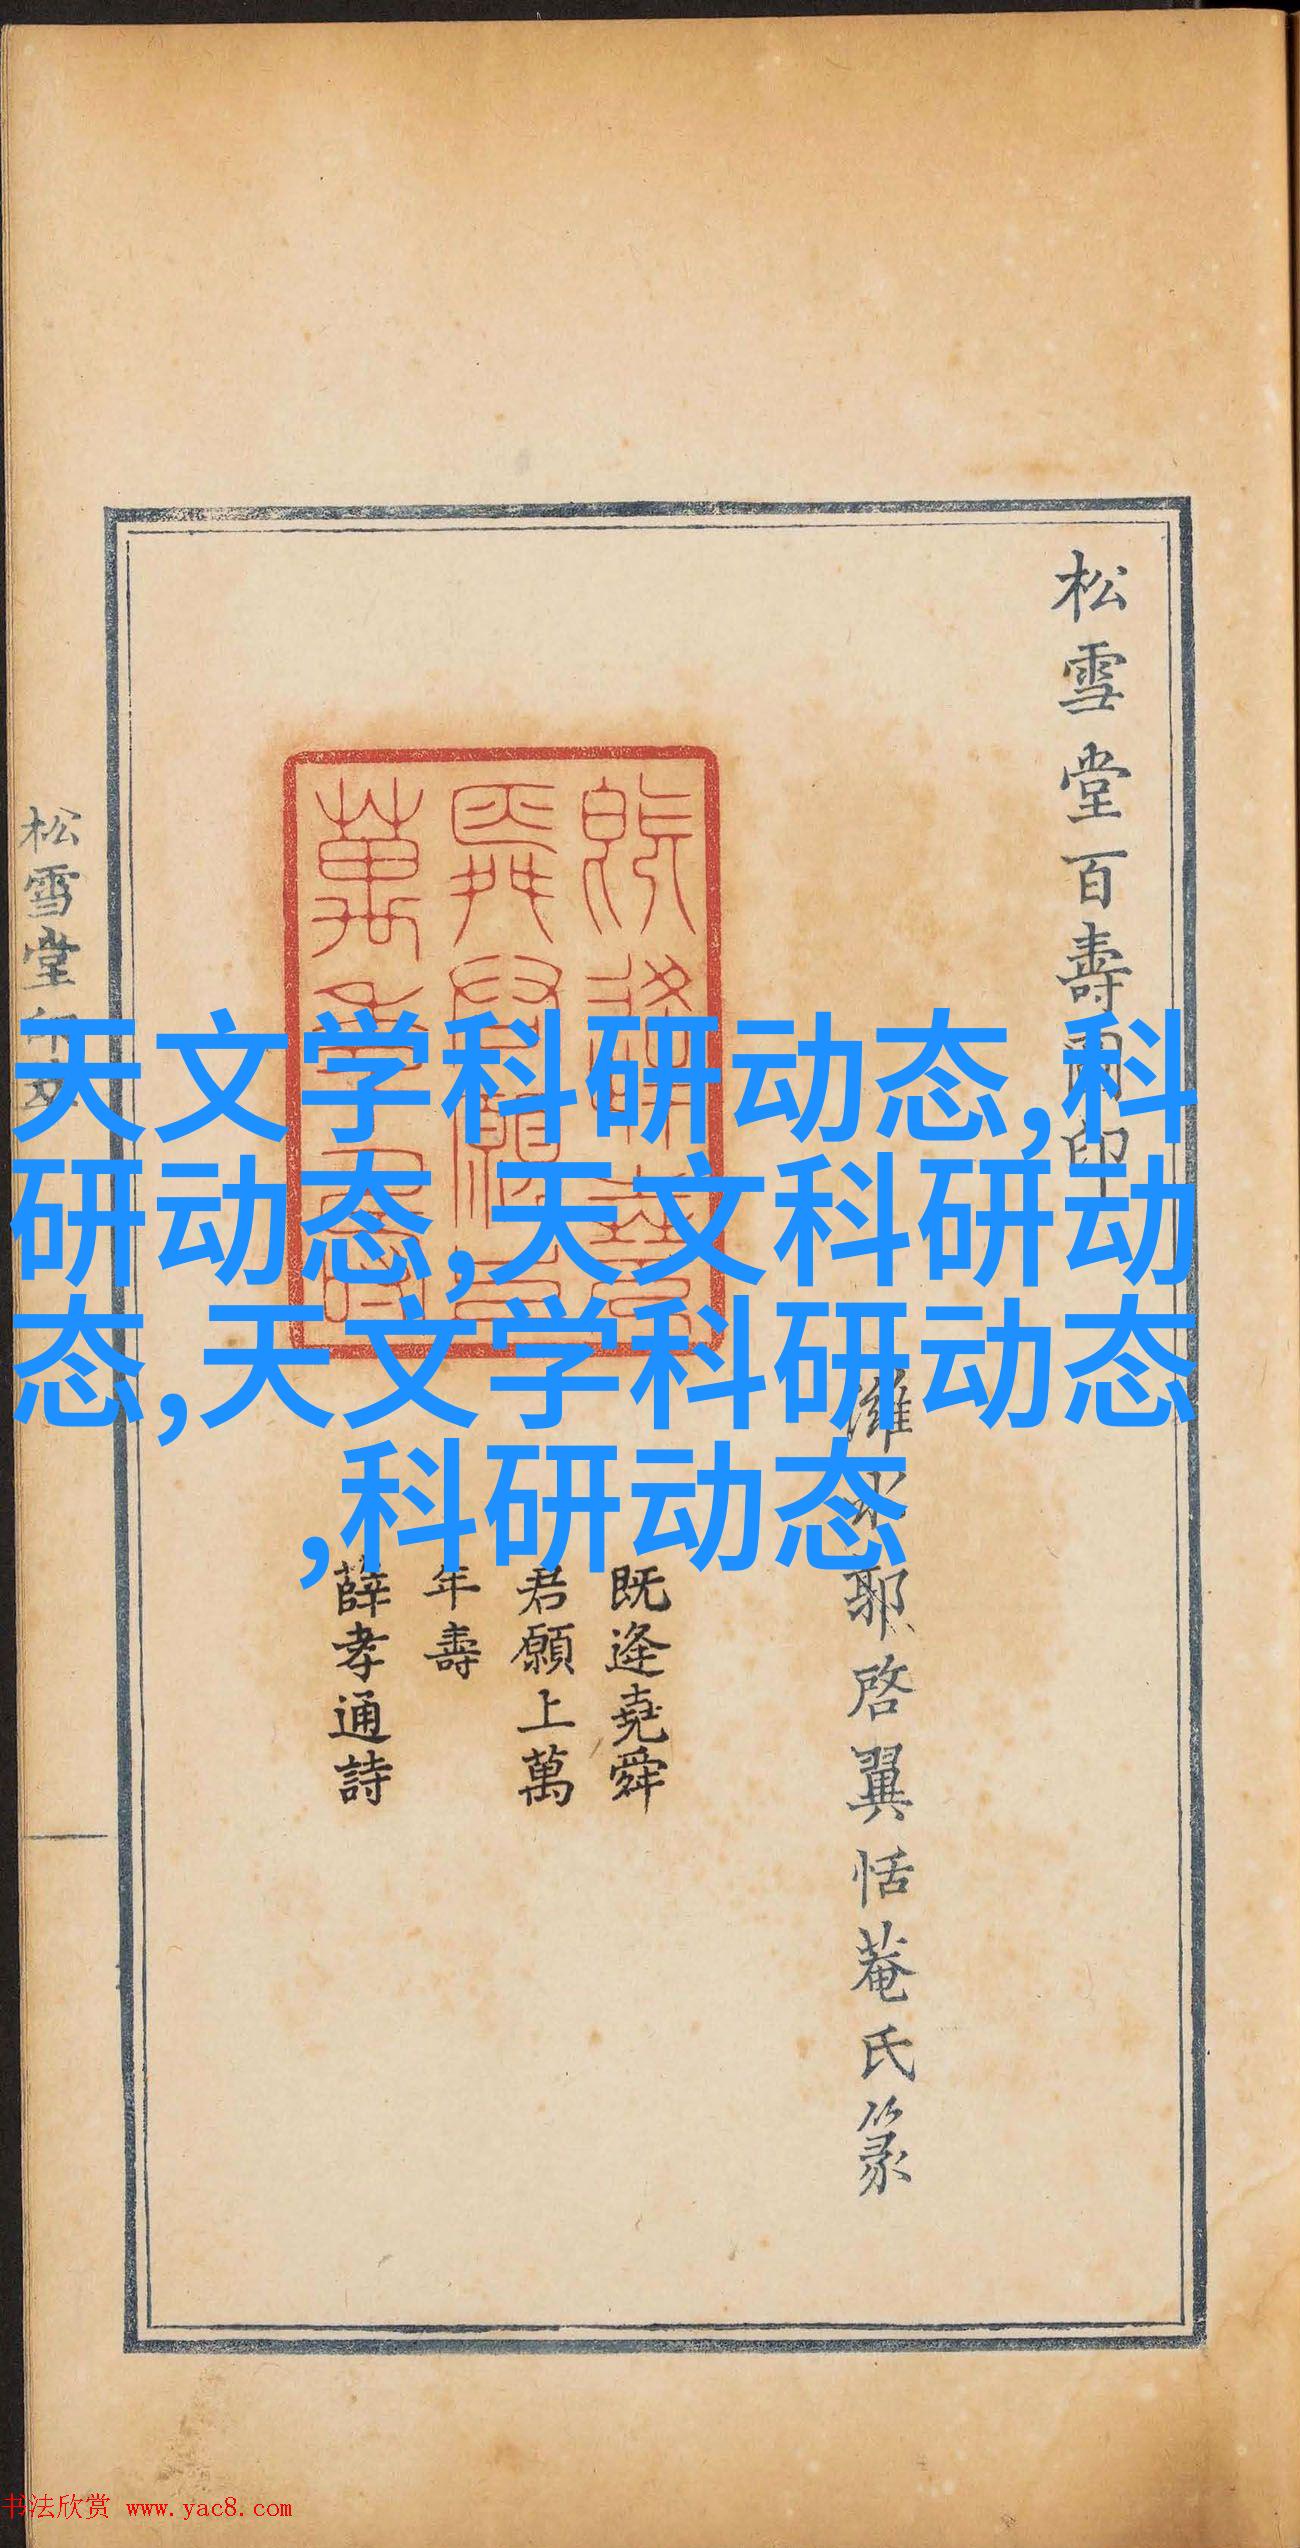 松雪堂百壽圖印
濰水耶啓翼恬菴氏篆
既逢堯舜
君願上萬
年壽
薛孝通詩
松雪堂印
天文学科研动态,科
研动态,天文科研动
态,天文学科研动态
,科研动态
书法欣赏 www.yac8.com